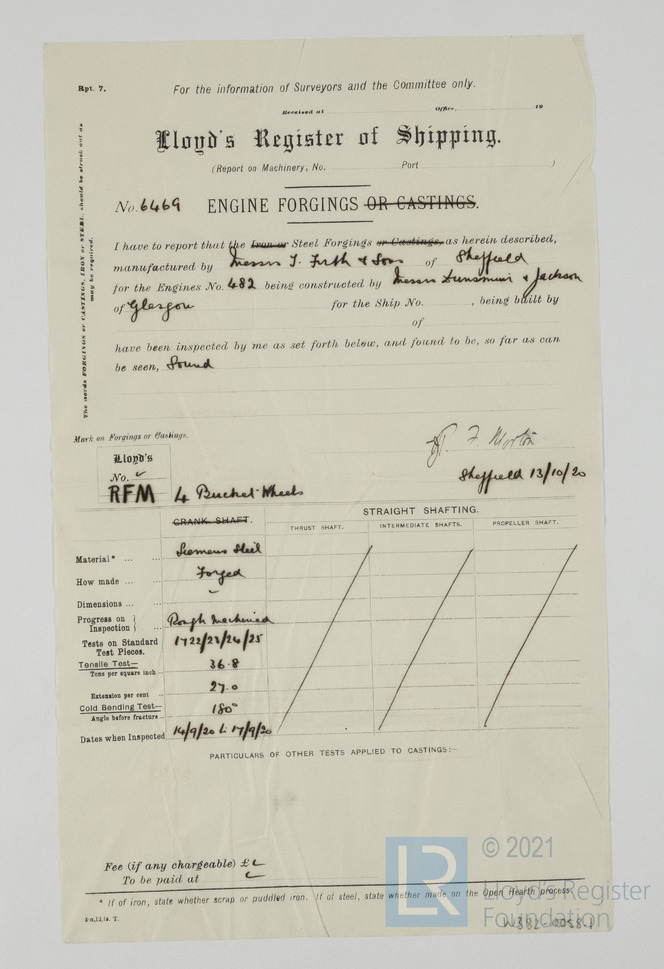 Rpt. 7.
For the information of Surveyors and the Committee only.
Received at Office, 19
Lloyd's Register of Shipping.
(Report on Machinery, No. Port )
No. 6469 ENGINE FORGINGS OR CASTINGS.
I have to report that the Iron or Steel Forgings or Castings, as herein described,
manufactured by Messrs T. Firth & Sons of Sheffield
for the Engines No. 482 being constructed by Messrs Dunsmuir & Jackson
of Glasgow for the Ship No. , being built by
of
have been inspected by me as set forth below, and found to be, so far as can
be seen, Sound
The words FORGINGS or CASTINGS, IRON or STEEL should be struck out as
may be required.
Mark on Forgings or Castings.
Lloyd's
No.
RFM
4 Bucket Wheels
R. F. Morton
Sheffield 13/10/20
CRANK SHAFT.
STRAIGHT SHAFTING.
THRUST SHAFT. INTERMEDIATE SHAFTS. PROPELLER SHAFT.
Material* ... ... Siemens Steel
How made ... ... Forged
Dimensions ... ...
Progress on Inspection } ... Rough Machined
Tests on Standard
Test Pieces. 1722/23/24/25
Tensile Test—
Tons per square inch 36.8
Extension per cent 27.0
Cold Bending Test—
Angle before fracture 180°
Dates when Inspected 14/9/20 to 17/9/20
PARTICULARS OF OTHER TESTS APPLIED TO CASTINGS:—
Fee (if any chargeable) £
To be paid at
* If of iron, state whether scrap or puddled iron. If of steel, state whether made on the Open Hearth process.
© 2021
LR
Lloyd's Register
Foundation
W382-0058-1